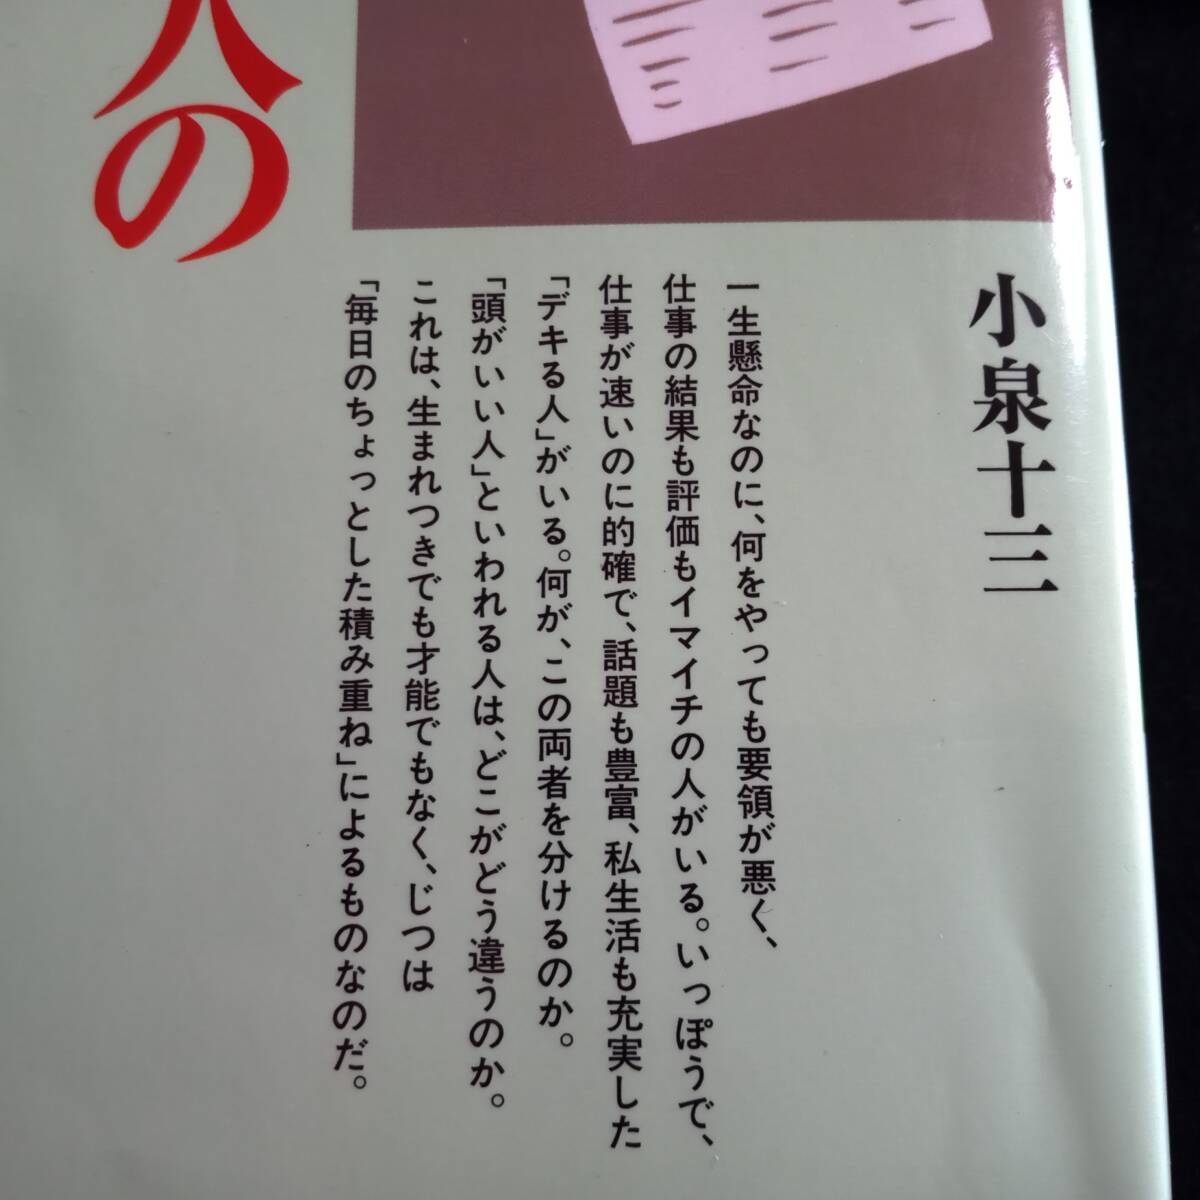 小泉十三
一生懸命なのに、何をやっても要領が悪く、
仕事の結果も評価もイマイチの人がいる。いっぽうで、
仕事が速いのに的確で、話題も豊富、私生活も充実した
「デキる人」がいる。何が、この両者を分けるのか。
「頭がいい人」といわれる人は、どこがどう違うのか。
これは、生まれつきでも才能でもなく、じつは
「毎日のちょっとした積み重ね」によるものなのだ。
人の